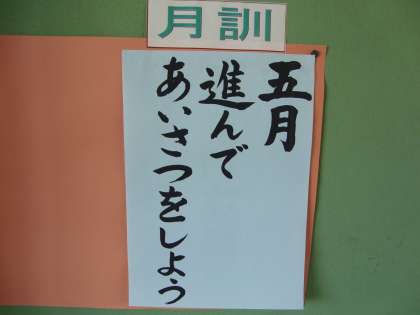 月訓
五月
進んで
あいさつをしよう